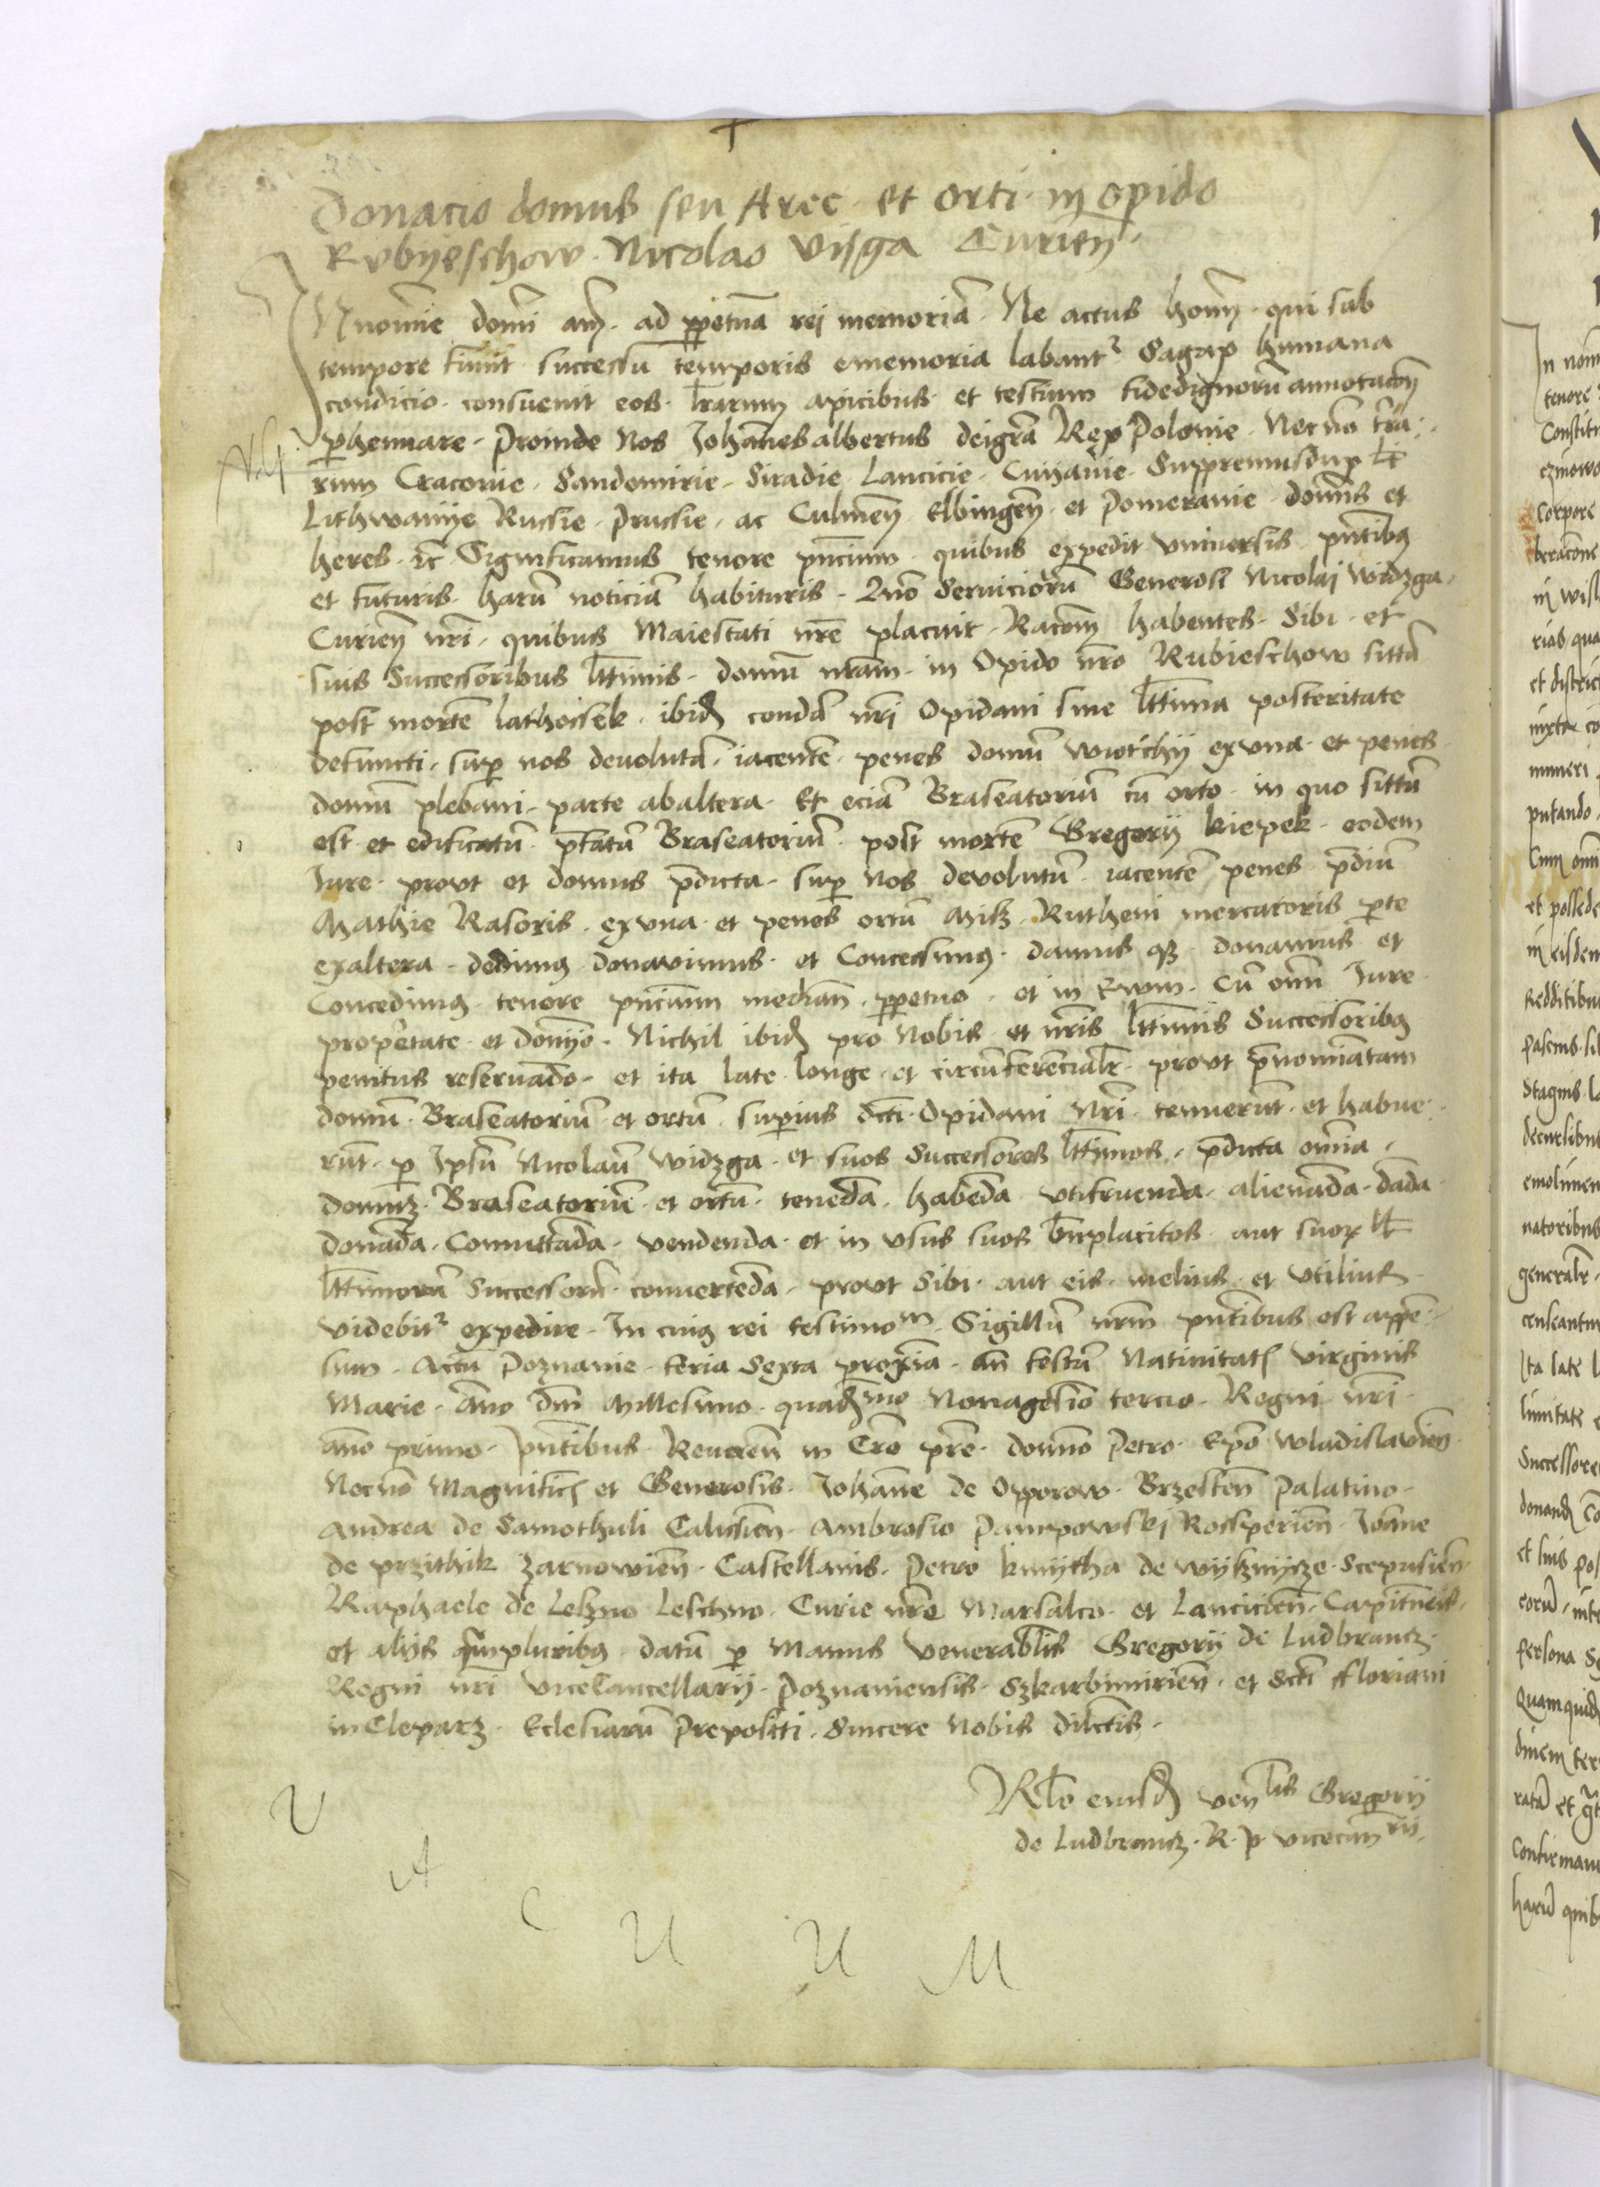 Donacio domus seu Aree et orti in opido
Rvbyeschow Nicolao Visga Curien
In nomie domi am ad ppetuā rei memoriā Ne actus hom qui sub
tempore fiunt successu temporis ememoria labant Sagax humana
condicio consuevit eos lrarum apicibus et testium fidedignorū annotacōn
phennare Proinde Nos Johānes albertus deigrā Rex Polonie Necnō trā
rum Cracovie Sandomirie Siradie Lancicie Cuiavie Suppremusdux
Lithwanije Russie Prussie ac Culmēn Elbingēn et Pomeranie domīs et
heres ꝛc Significamus tenore pncium quibus expedit vniversis pntibꝰ
et futuris harū noticiā habituris Quō Serviciorū Generosi Nicolaj Widzga
Curien nrī quibus Maiestati nrē placuit Racōm habentes Sibi et
suis Successoribus lttimis domū nrām in Opido nrō Rubieschow sittā
post mortē lathoisek ibid condā nrī Opidani sine lttima posteritate
defuncti sup nos devolutā iacentē penes domū wotchij exvna et penes
domū plebani parte abaltera Et eciā Braseatoriū cū orto in quo sittū
est et edificatū pfatū Braseatoriū post mortē Gregorij kiepek eodem
Iure provt et domus pdicta sup Nos devolutū iacentē penes pdiū
Mathie Rasoris exvna et penes ortū Misz Rutheni mercatoris pte
exaltera dedimꝰ donavimus et Concessimꝰ damus qȝ donamus et
Concedimꝰ tenore pncium mediān ppetuo et in Evum Cū omi Iure
propetate et domijo Nichil ibid pro Nobis et nrīs lttimis Successoribꝰ
penitus reservādo et ita late longe et circūferēncialr provt pnominatam
domū Braseatoriū et ortū supius dcti Opidani Nrī tenuerūt et habue
rūt p Ipsū Nicolaū Widzga et suos Successores lttimos pdicta omīa
domūȝ Braseatoriū et ortū tenēda habēda vtifruenda alienāda dāda
donāda Comutāda vendenda et in vsus suos bnplacitos aut suoꝝ
lttimorū Successorū convertēda provt Sibi aut eis melius et vtilius
videbit expedire In cuiꝰ rei testimom Sigillū nrm pntibus est appē
sum Actū Poznanie feria Sexta proxīa an festū Nativitatꝭ virginis
Marie Ano dm Millesimo quadmo Nonagesīo tercio Regni nrī
ano primo pntibus Reverēn in Cro pre domno Petro Epo wladislavien
Necnō Magnificꝭ et Generosis Johāne de Opporow Brzestēn Palatino
Andrea de Samothuli Calisien Ambrosio Pampowskj Rosperien Joāne
de przithik zarnowien Castellanis Petro kmytha de wysznycze Scepusien
Raphaele de Leszno Leschno Curie nrē Marsalco et Lancicien Capitneis
et alijs qmpluribꝰ datū p Manus Venerablis Gregorij de Ludbrancz
Regni nrī vicecancellarij Poznaniensis Szkarbimirien et Scti ffloriani
in Cleparz Eclesiarū Prepositi Sincere Nobis dilctis
Rlo eiusd venlis Gregorij
de Ludbrancz R p vicecanrij
V
A
C
U U M